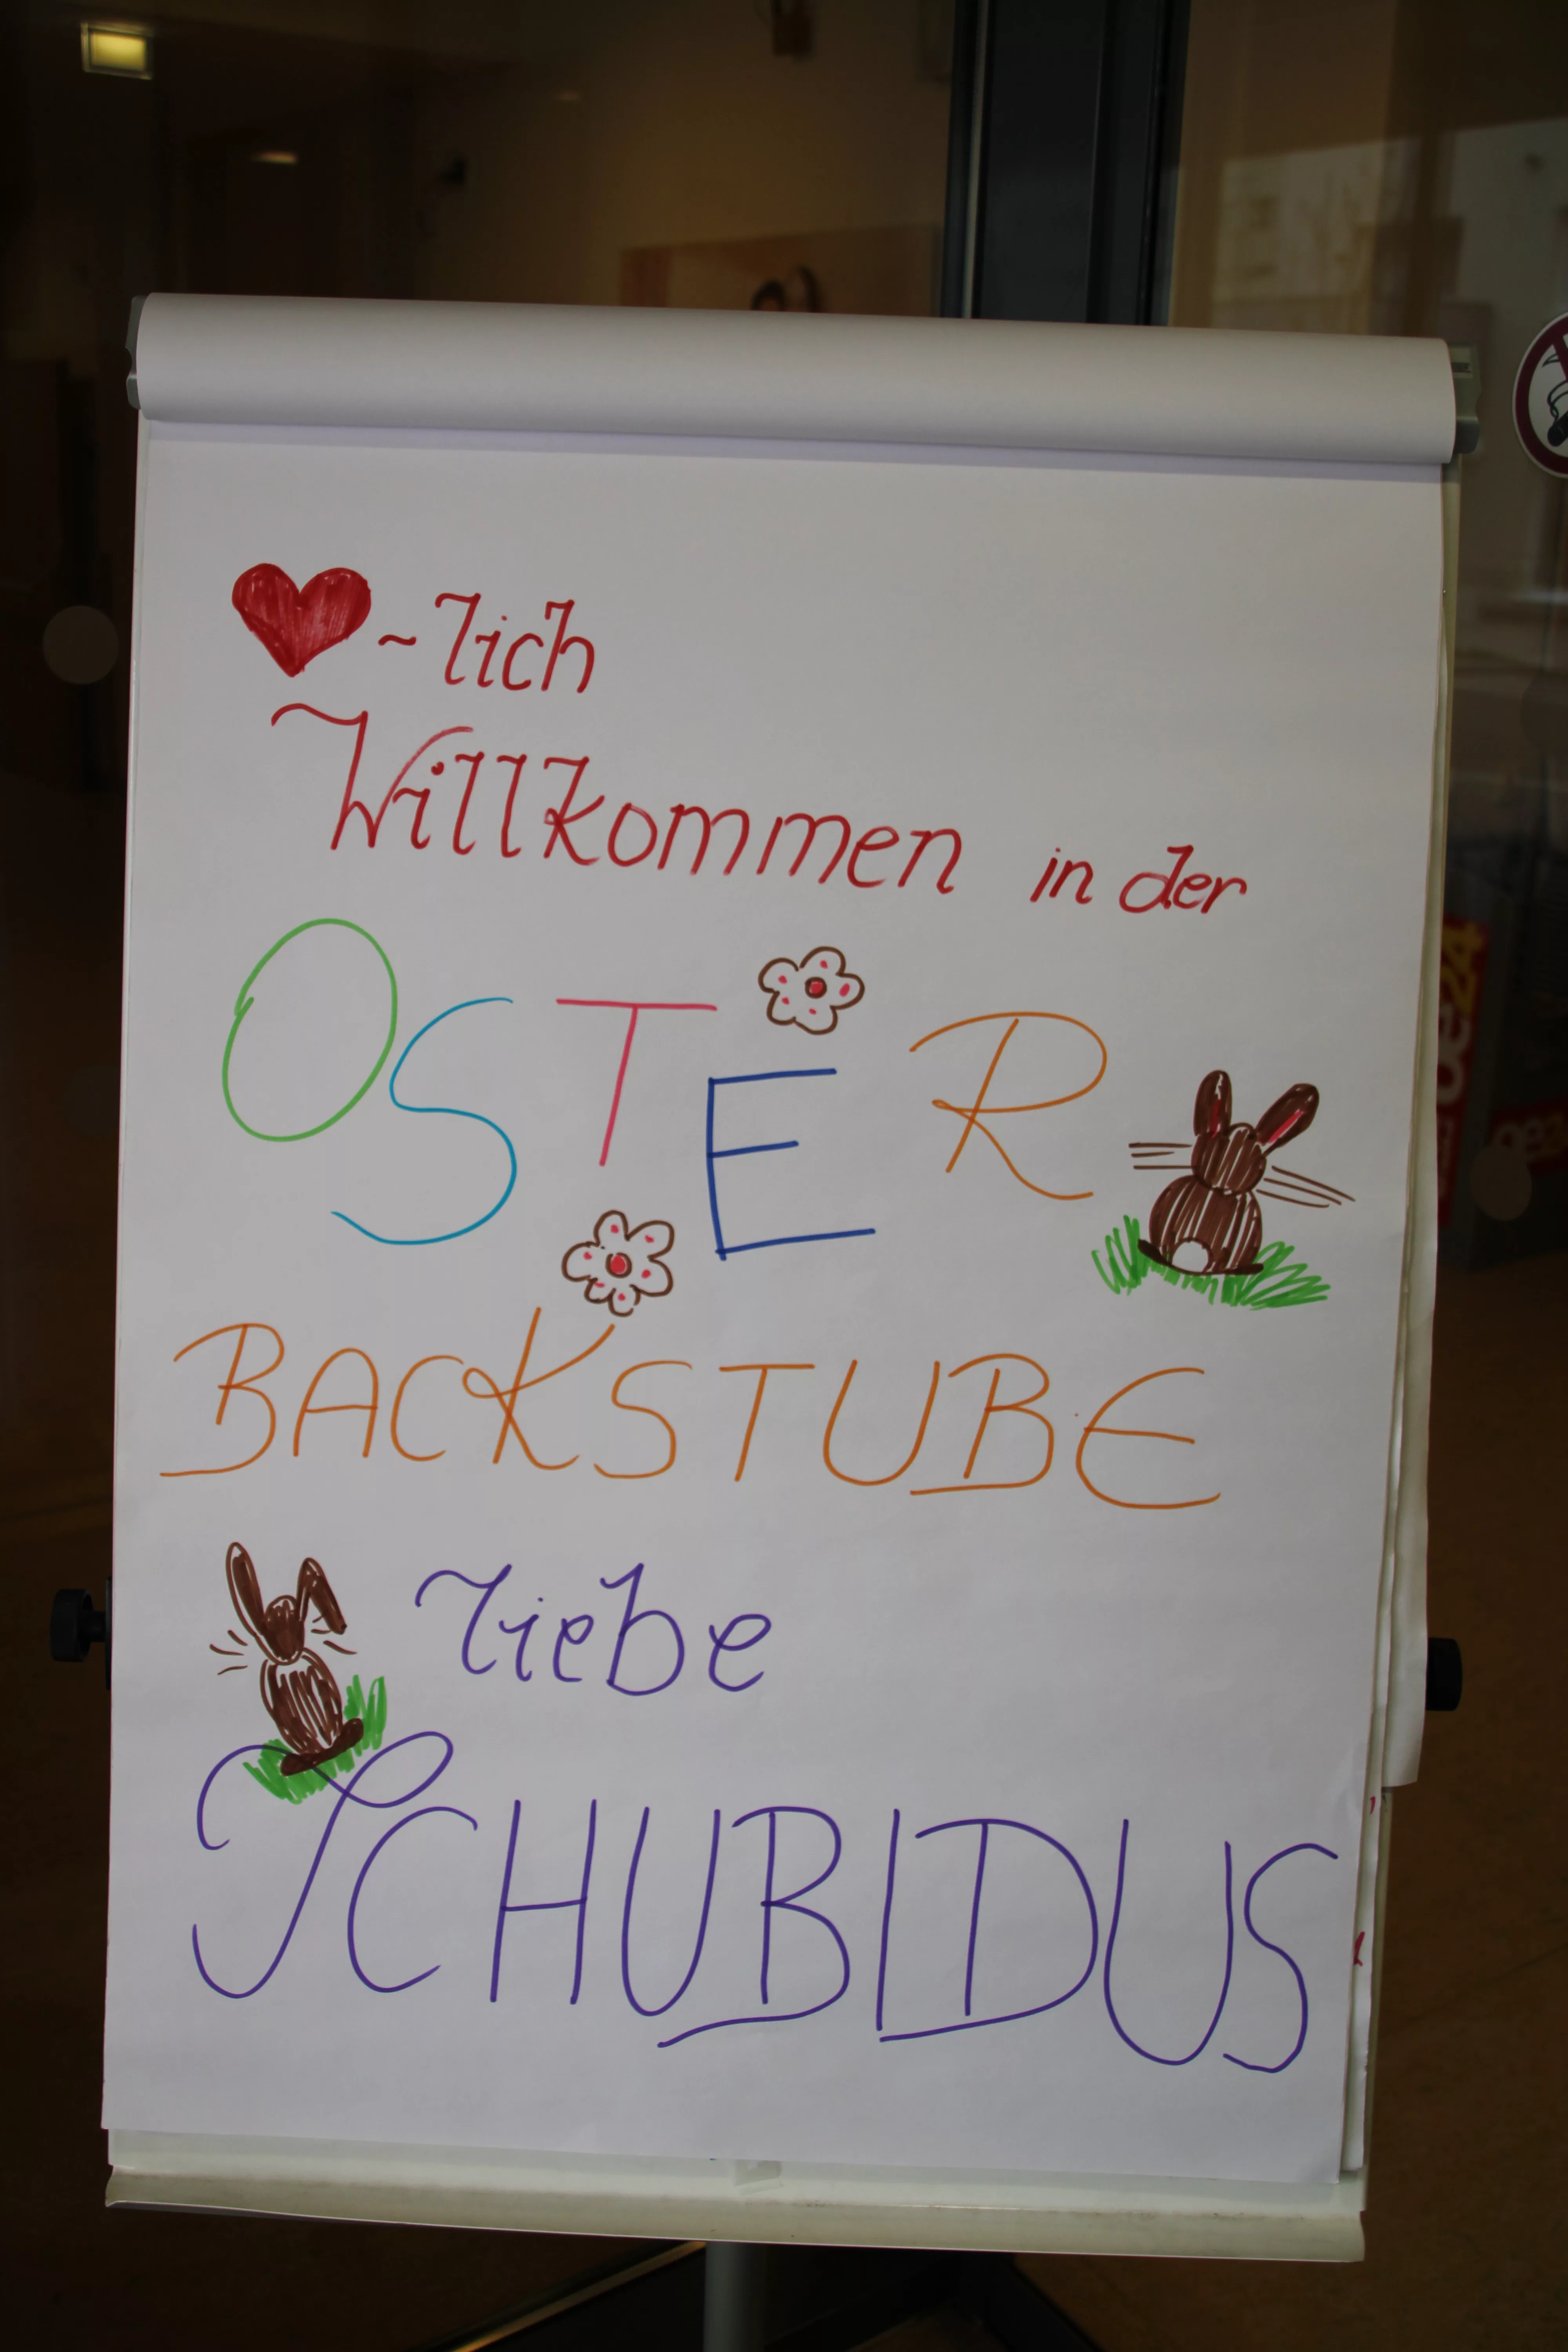 ❤~lich
Willkommen in der
OSTER
BACKSTUBE
liebe
SCHUBIDUS
oe24